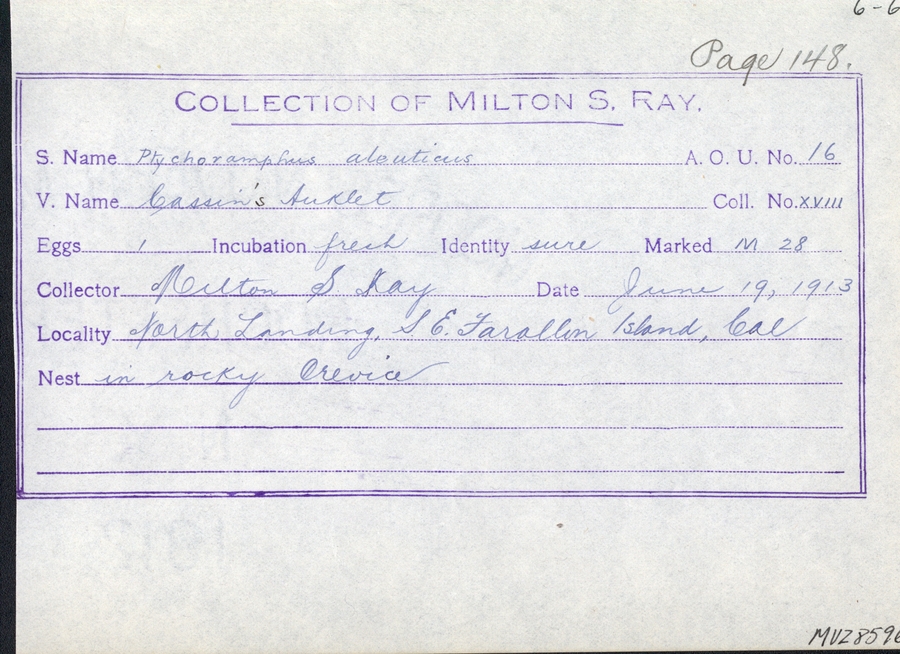 6-6
Page 148.
COLLECTION OF MILTON S. RAY.
S. Name Ptychoramphus aleuticus A. O. U. No. 16
V. Name Cassin's Auklet Coll. No. XVIII
Eggs 1 Incubation fresh Identity sure Marked M 28
Collector Milton S. Ray Date June 19, 1913
Locality North Landing, S E. Farallon Island, Cal
Nest in rocky Crevice
MVZ8596